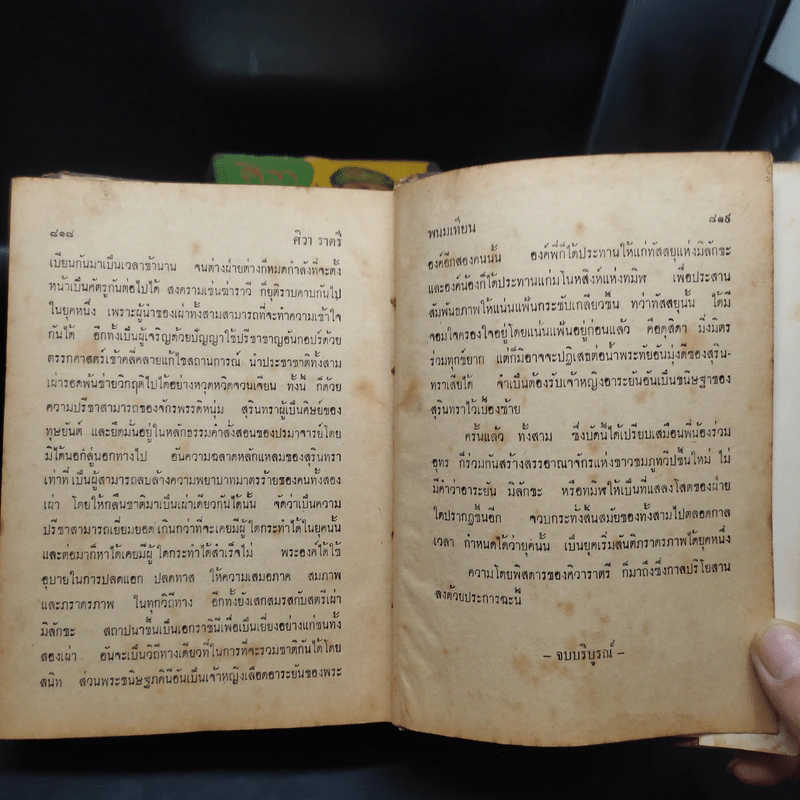 ๘๑๘ ศิวา ราตรี
เบียนกันมาเป็นเวลาช้านาน จนต่างฝ่ายต่างก็หมดกำลังที่จะตั้ง
หน้าเป็นศัตรูกันต่อไปได้ สงครามเช่นข่าราวี ก็ยุติราบคาบกันไป
ในยุคหนึ่ง เพราะผู้นำของเผ่าทั้งสามสามารถที่จะทำความเข้าใจ
กันได้ อีกทั้งเป็นผู้เจริญด้วยปัญญาใช้ปรีชาชาญอันกอปร์ด้วย
ตรรกศาสตร์เข้าคลี่คลายแก้ไขสถานการณ์ นำประชาชาติทั้งสาม
เผ่ารอดพ้นข่ายวิกฤติไปได้อย่างหวุดหวิดจวนเจียน ทั้งนี้ ก็ด้วย
ความปรีชาสามารถของจักรพรรดิหนุ่ม สุรินทราผู้เป็นศิษย์ของ
ทุษยันต์ และยึดมั่นอยู่ในหลักธรรมคำสั่งสอนของปรมาจารย์โดย
มิได้นอกลู่นอกทางไป อันความฉลาดหลักแหลมของสุรินทรา
เท่าที่ เป็นผู้สามารถลบล้างความพยาบาทมาตรร้ายของคนทั้งสอง
เผ่า โดยให้กลืนชาติมาเป็นเผ่าเดียวกันได้นั้น จัดว่าเป็นความ
ปรีชาสามารถเยี่ยมยอด เกินกว่าที่จะเคยมีผู้ ใดกระทำได้ในยุคนั้น
และต่อมาก็หาได้เคยมีผู้ ใดกระทำได้สำเร็จไม่ พระองค์ได้ใช้
อุบายในการปลดแอก ปลดทาส ให้ความเสมอภาค สมภาพ
และภราดรภาพ ในทุกวิถีทาง อีกทั้งยังเสกสมรสกับสตรีเผ่า
มิลักขะ สถาปนาขึ้นเป็นเอกราชินีเพื่อเป็นเยี่ยงอย่างแก่ชนทั้ง
สองเผ่า อันจะเป็นวิถีทางเดียวที่ในการที่จะรวมชาติกันได้โดย
สนิท ส่วนพระขนิษฐภคินีอันเป็นเจ้าหญิงเลือดอาระยันของพระ
พนมเทียน ๘๑๙
องค์อีกสองคนนั้น องค์พี่ก็ได้ประทานให้แก่ทัสสยุแห่งมิลักขะ
และองค์น้องก็ได้ประทานแก่มโนหสิงห์แห่งทมิฬ เพื่อประสาน
สัมพันธภาพให้แน่นแฟ้นกระชับเกลียวขึ้น ทว่าทัสสยุนั้น ได้มี
จอมใจครองใจอยู่โดยแน่นแฟ้นอยู่ก่อนแล้ว คือดุสิตา มิ่งมิตร
ร่วมทุกข์ยาก แต่ก็มิอาจจะปฏิเสธต่อน้ำพระทัยอันมุ่งดีของสุริน-
ทราเสียได้ จำเป็นต้องรับเจ้าหญิงอาระยันอันเป็นขนิษฐาของ
สุรินทราไว้เบื้องซ้าย
ครั้นแล้ว ทั้งสาม ซึ่งบัดนี้ได้เปรียบเสมือนพี่น้องร่วม
อุทร ก็ร่วมกันสร้างสรรอาณาจักรแห่งชาวชมภูทวีปขึ้นใหม่ ไม่
มีคำว่าอาระยัน มิลักขะ หรือทมิฬให้เป็นที่แสลงโสตของฝ่าย
ใดปรากฏขึ้นอีก จวบกระทั่งสิ้นสมัยของทั้งสามไปตลอดกาล
เวลา กำหนดได้ว่ายุคนั้น เป็นยุคเริ่มสันติภราดรภาพได้ยุคหนึ่ง
ความโดยพิสดารของศิวาราตรี ก็มาถึงซึ่งกาลปริโยสาน
ลงด้วยประการฉะนี้
– จบบริบูรณ์ –